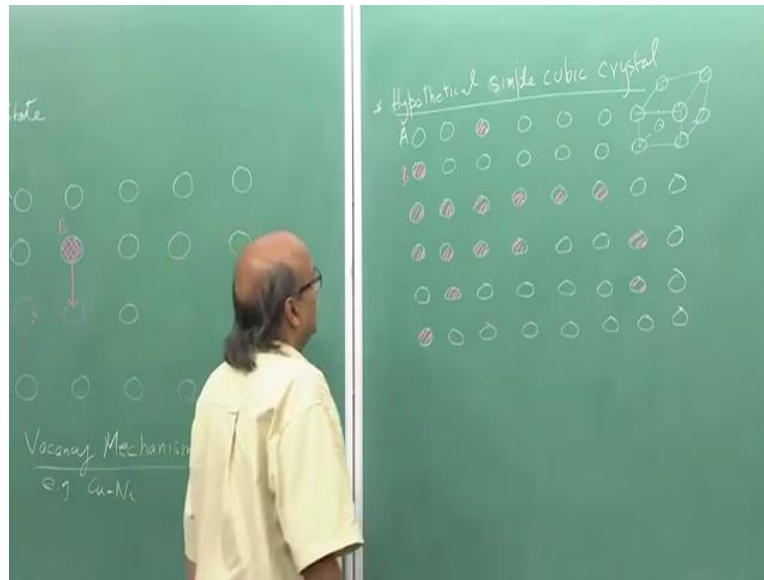 State
B
Vacancy Mechanism
e.g Cu-Ni
* Hypothetical simple cubic crystal
A
B